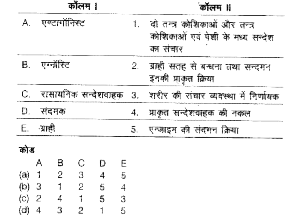 कॉलम I कॉलम II
A. एण्टागोनिस्ट 1. दो तन्त्र कोशिकाओं और तन्त्र
कोशिकाओं एवं पेशी के मध्य सन्देश
का संचार
B. एगोनिस्ट 2 ग्राही सतह से बन्धना तथा सन्दमन
इनकी प्राकृत क्रिया
C. रासायनिक सन्देशवाहक 3. शरीर की संचार व्यवस्था में निर्णायक
D. संदमक 4. प्राकृत सन्देशवाहक की नकल
E. ग्राही 5. एन्जाइम की संदमन क्रिया
कोड
A B C D E
(a) 1 2 3 4 5
(b) 3 1 2 5 4
(c) 2 4 1 5 3
(d) 4 3 2 1 5